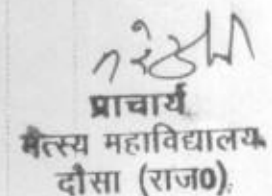 प्राचार्य
मत्स्य महाविद्यालय
दौसा (राज0)